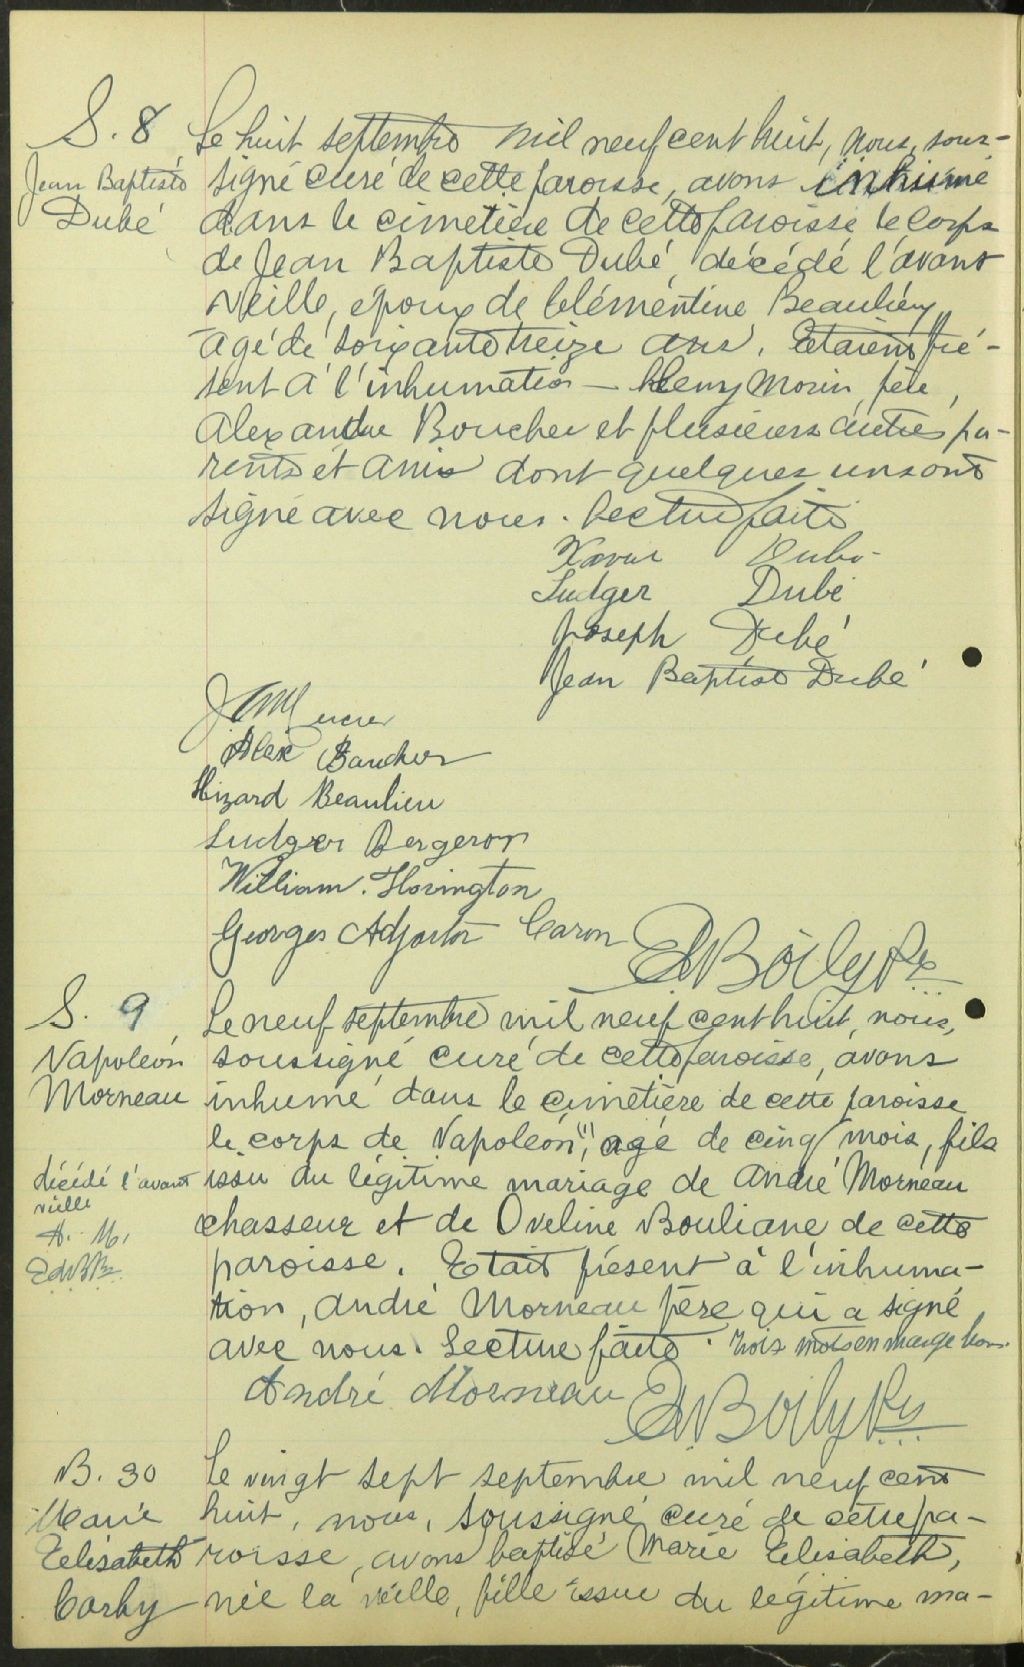 S. 8
Jean Baptiste
Dubé
Le huit septembre mil neuf cent huit, nous, sous-
signé curé de cette paroisse, avons inhumé
dans le cimetière de cette paroisse le corps
de Jean Baptiste Dubé, décédé l'avant
veille, époux de Clémentine Beaulieu,
agé de soixante treize ans. Etaient pré-
sent à l'inhumation - Henry Morin, père,
Alexandre Boucher et plusieurs autres pa-
rents et amis dont quelques uns ont
signé avec nous. Lecture faite
Xavier Dubé
Ludger Dubé
Joseph Dubé
Jean Baptiste Dubé
Alex Boucher
Hizard Beaulieu
Ludger Bergeron
William. Horington
Georges Caron
Boily Ptre
S. 9
Napoléon
Morneau
Le neuf septembre mil neuf cent huit, nous,
soussigné curé de cette paroisse, avons
inhumé dans le cimetière de cette paroisse
le corps de Napoléon, (1) agé de cinq mois, fils
décédé l'avant
veille
A. M.
EdBPtre
issu du légitime mariage de André Morneau
chasseur et de Oveline Bouliane de cette
paroisse. Etait présent à l'inhuma-
tion, André Morneau père qui a signé
avec nous. Lecture faite. trois mots en marge bons.
André Morneau
Boily Ptre
B. 30
Marie
Elisabeth
Corby
Le vingt sept septembre mil neuf cent
huit, nous, soussigné curé de cette pa-
roisse, avons baptisé Marie Elisabeth,
née la veille, fille issue du légitime ma-